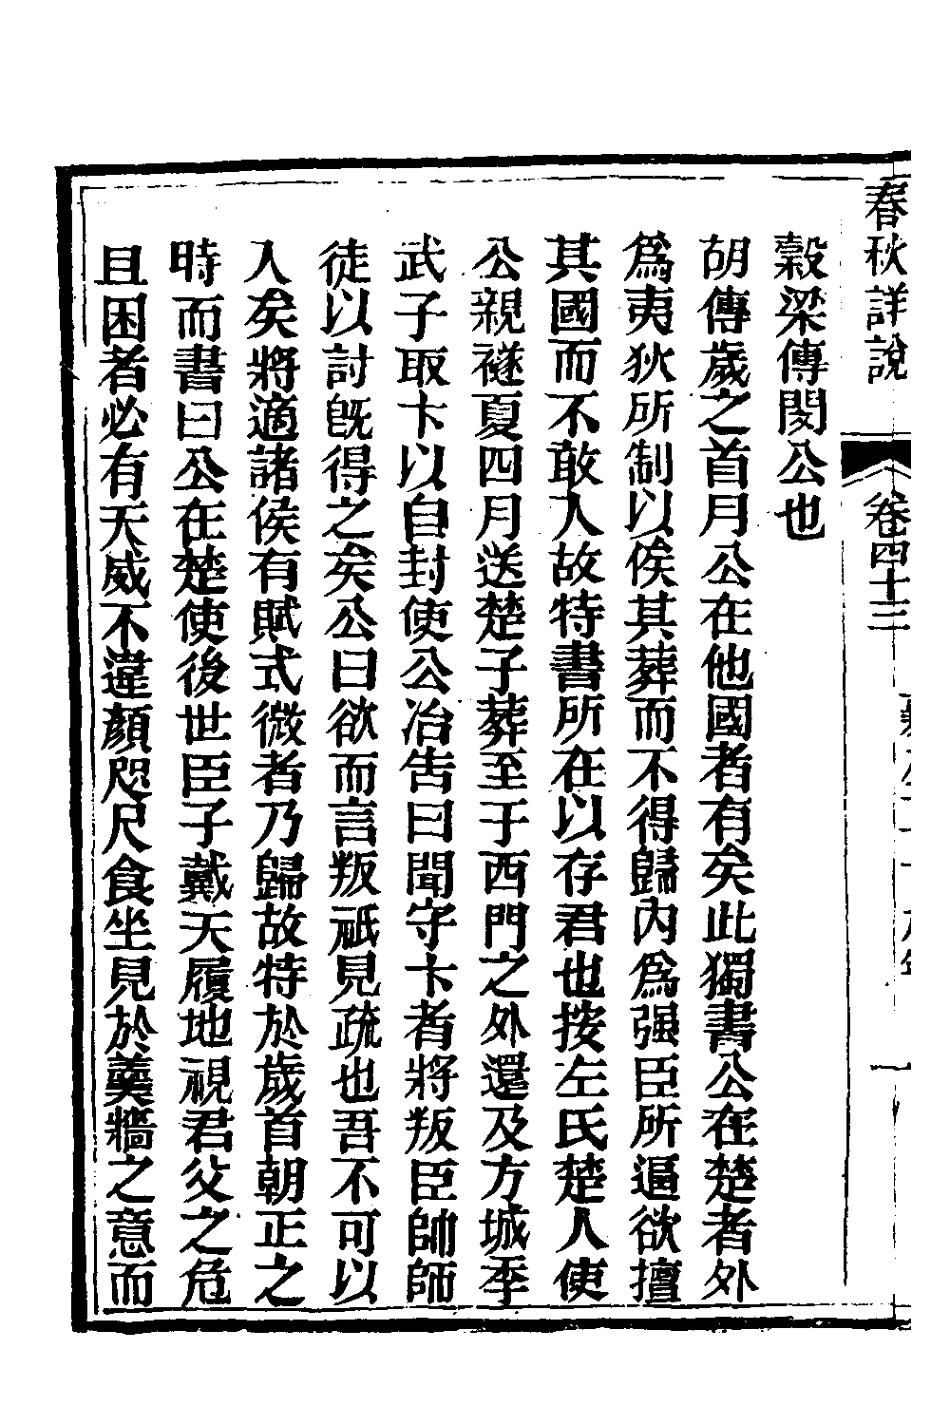 春秋詳說
卷四十三
一
穀梁傳閔公也
胡傳歲之首月公在他國者有矣此獨書公在楚者外
爲夷狄所制以俟其葬而不得歸內爲强臣所逼欲擅
其國而不敢入故特書所在以存君也按左氏楚人使
公親襚夏四月送楚子葬至于西門之外還及方城季
武子取卞以自封使公冶告曰聞守卞者將叛臣帥師
徒以討旣得之矣公曰欲而言叛祇見疏也吾不可以
入矣將適諸侯有賦式微者乃歸故特於歲首朝正之
時而書曰公在楚使後世臣子戴天履地視君父之危
且困者必有天威不違顏咫尺食坐見於羹牆之意而